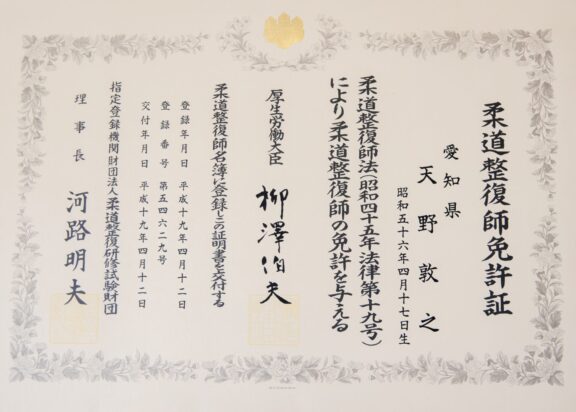 柔道整復師免許証
愛知県
天野敦之
昭和五十六年四月十七日生
柔道整復師法(昭和四十五年法律第十九号)
により柔道整復師の免許を与える
厚生労働大臣 柳澤伯夫
柔道整復師名簿に登録しこの証明書を交付する
登録年月日 平成十九年四月十二日
登録番号 第五四六二九号
交付年月日 平成十九年四月十二日
指定登録機関財団法人柔道整復研修試験財団
理事長 河路明夫